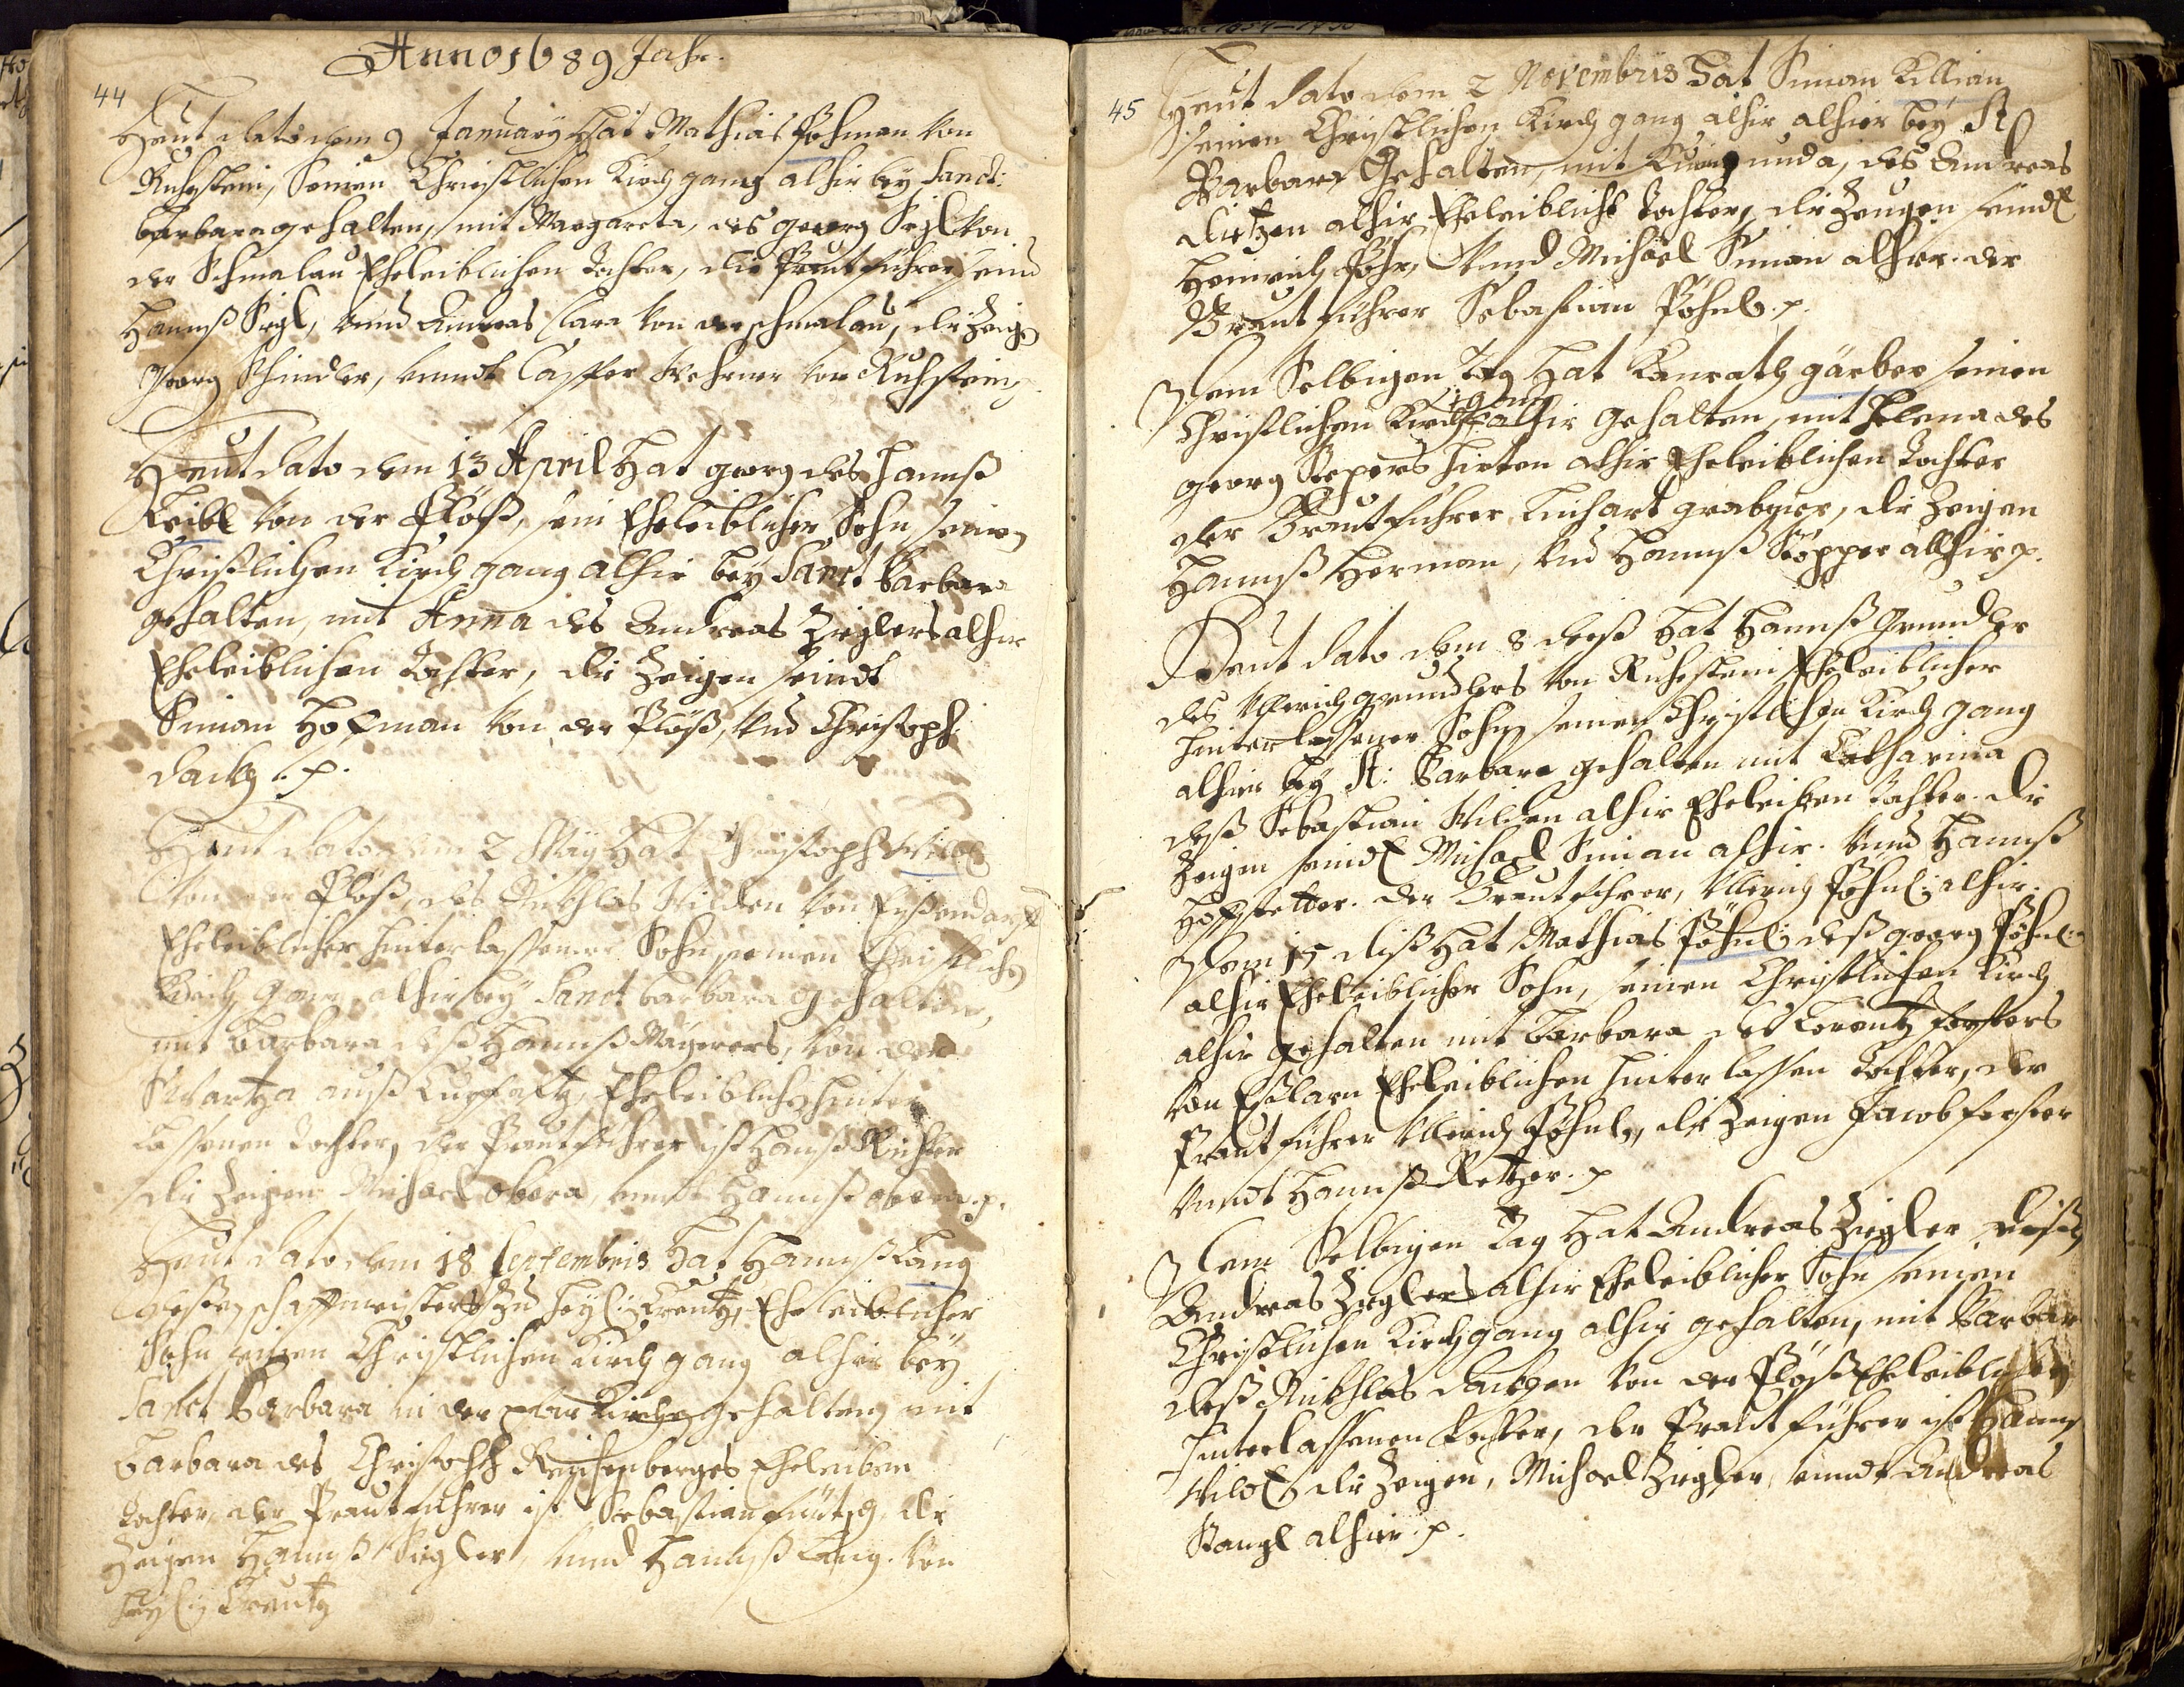 Anno 1689 Jahr.
44
Heut dato dem 9 January Hat Mathias Pöhman von
Ruhstein, Seinen Christlichen Kirchgang alhir bey Sanct:
Barbara gehalten, mit Margareta, des georg Sigl von
der Schmalau Eheleiblichen Tochter, die Prautführer seind
Hannß Sigl, vnd Andreas Clara von der schmalau, die Zeigen
Georg Schindler, vnndt Casper Wehrner von Ruhstein
Heut dato dem 13 April Hat georg des Hannß
Keibl von der Plöß, sein Eheleiblicher Sohn seinen
Christlichen Kirchgang alhir bey Sanct Barbara
gehalten, mit Anna des Andreas Zieglers alhir
Eheleiblichen Tochter, die Zeigen seindt
Simon Hofman von der Plöß, vnd Christoph
.p.
Heut dato dem 2 May Hat Christoph Wildt
von der Plöß, des Nikhlas Wilden von
Eheleiblicher hinterlassener Sohn seinen Christlichen
Kirchgang alhir bey Sanct barbara gehalten,
mit Barbara deß Hannß von der
auß Eheleiblich hinter
lassenen Tochter, der Prautführer ist Hannß Richter
die Zeigen Michael obera, vnnd Hannß obera .p.
Heut dato dem 18 Septembris Hat Hannß Lang
schaffmeisters zu Heyl: Creutz, Eheleiblicher
Sohn seinen Christlichen Kirchgang alhir bey
Sanct Barbara in der pfar Kirchen gehalten mit
Barbara des Christoph Reichenberges Eheleiben
Tochter, der Prautführer ist Sebastian die
Zeigen Hannß Ziegler, vnnd Hannß Lang. von
Heylig Creutz
45
Heut dato dem 2 Novembris Hat Simon Killian
seinen Christlichen Kirchgang alhir alhier bey St
Barbara Gehalten, mit Kunigunda, des Andreas
alhir Eheleibliche Tochter, die Zeugen seindt
Heinrich vnnd Michael Simon alhir. der
Brautführer Sebastian Pöhnl .p.
Dem Selbigen Tag Hat Conrath gärber seinen
gang
Christlichen Kirch alhir gehalten, mit Helena des
georg hirten alhir Eheleiblichen Tochter
der Brautführer Linhart grabner, die Zeigen
Hannß Herman, vnd Hannß alhir .p.
Heut dato dem 8 deß Hat Hannß Grundler
des Vllerich grundlers von Ruhstein Eheleiblicher
hinterlassener Sohn seinen Christlichen Kirchgang
alhier bey St: Barbara gehalten mit Catharina
deß Sebastian Wilden alhir Eheleiben Tochter. die
Zeigen seindt Michael Simon alhir. vnnd Hannß
Hofstetter. der Brautführer, Vllerich Pöhnl: alhir.
Dem 15 diß Hat Mathias Pöhnl: deß georg Pöhnl:
alhir Eheleiblicher Sohn, seinen Christlichen Kirch
alhir gehalten mit Barbara des Lorentz forsters
von Eslarn Eheleiblichen hinterlassen Tochter, der
Prautführer Vllerich Pöhnl, die Zeigen Jacob forster
vnndt Hannß Retzer .p
Dem Selbigen Tag Hat Andreas Ziegler deß
Andreas Zieglers alhir Eheleiblicher Sohn seinen
Christlichen Kirchgang alhir gehalten, mit Barbar
deß Nikhlas von der Plöß Eheleiblichen
hinterlassenen Tochter, der Prautführer ist Hannß
Wildt die Zeigen, Michael Ziegler, vnndt Andreas
Stangl alhir .p.